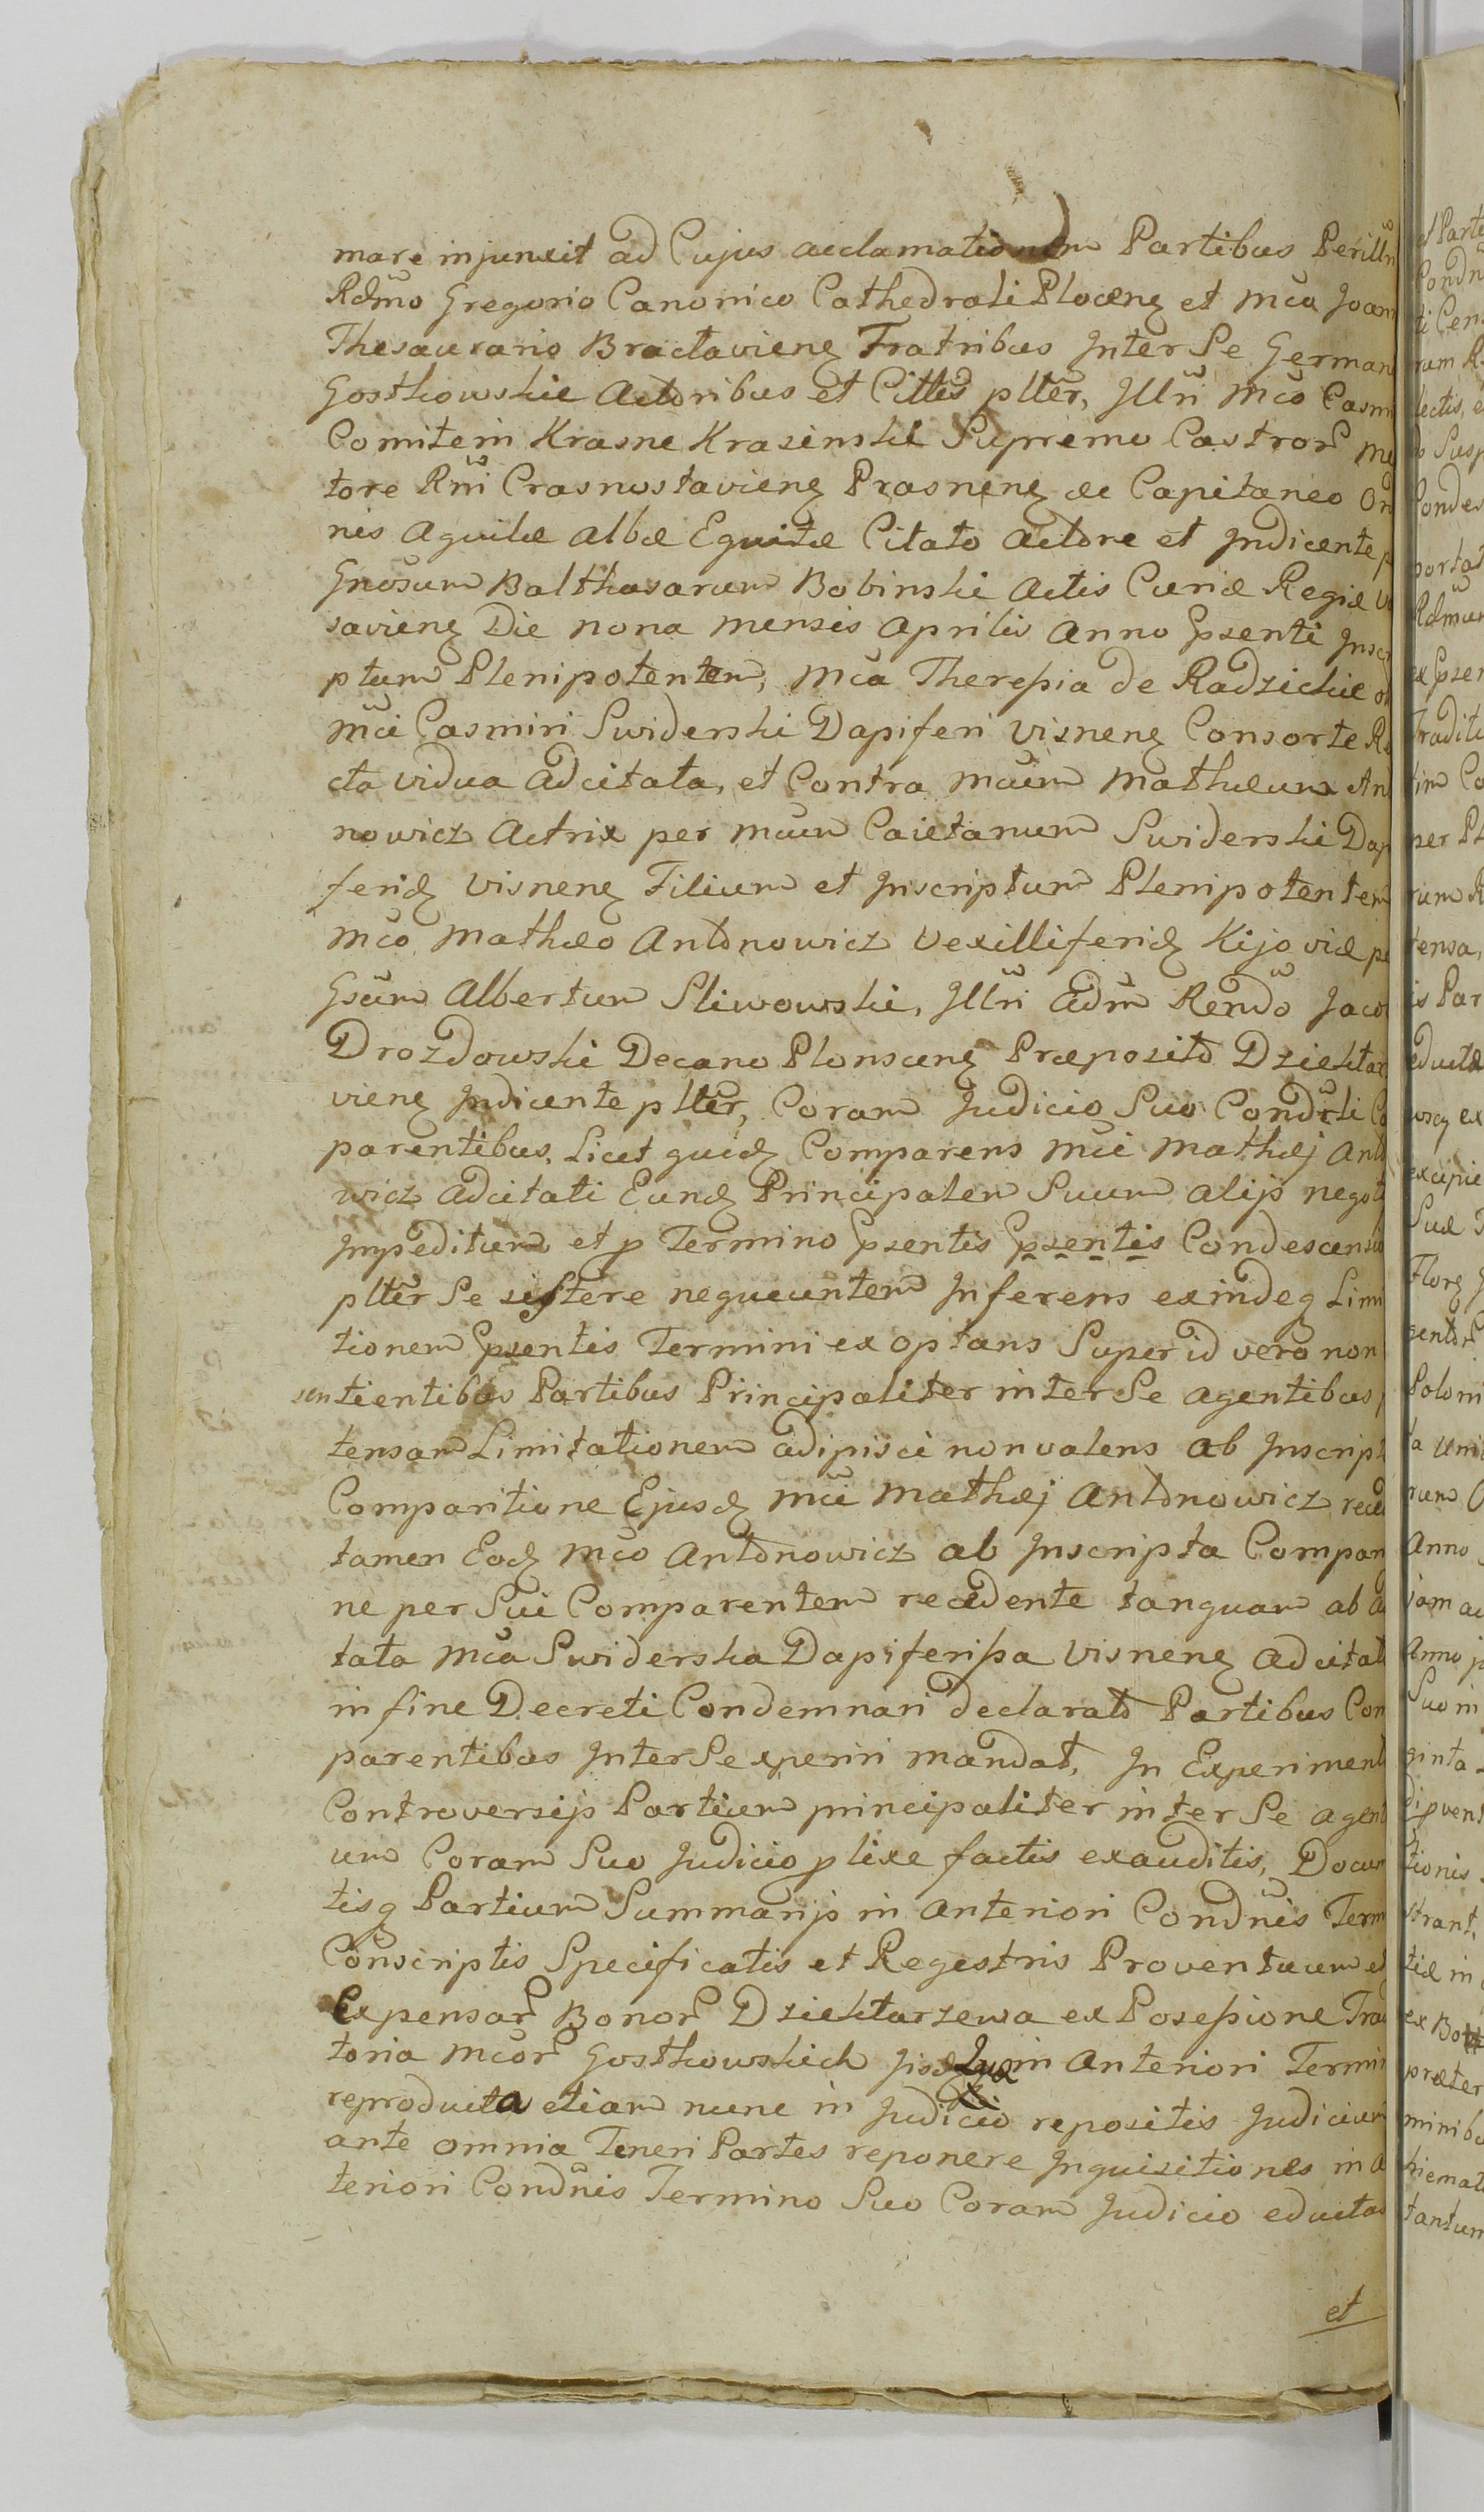 mare injunxit ad Cujus acclamationem Partibus Perillri
Rdmo Gregorio Canonico Cathedrali Plocen et Mco Joan
Thesaurario Braclavien Fratribus Inter Se German
Gostkowskie Actoribus et Cittis plter, Illri Mco Casm
Comite in Krasne Krasinski Supremo Castror Me
tore Rni Crasnostavien Prasnen &c Capitaneo Ord
nis Aquilæ Albæ Equite Citato Actore et Indicente p
Gnosum Balthasarum Bobinski Actis Curiæ Regiæ Va
savien Die nona mensis Aprilis Anno Psenti Inscr
ptum Plenipotentem, Mca Theressia de Radzickie
Mci Casmiri Swiderski Dapiferi Visnen Consorte Re
cta vidua Adcitata, et Contra Mcum Mathæum Anto
nowicz Actrix per Mcum Caietanum Swiderski Dap
ferid Visnen Filium et Inscriptum Plenipotentem
Mco Mathæo Antonowicz Vexilliferid Kijoviæ pe
Gsum Albertum Sliwowski, Illri Adm Rendo Jaco
Drozdowski Decano Plonscen Præposito Dziektar
vien Indicente plter, Coram Judicio Suo Condrli Co
parentibus, Licet quid Comparens Mci Mathæj Anto
wicz Adcitati Eund Principalem Suum alijs negot
Impeditum et p Termino Psentis Psentis Condescensu
pltèr Se sistere nequeuntem Inferens exindeq Limi
tionem Psentis Termini exoptans Super id vero non
sentientibus Partibus Principaliter inter Se agentibus p
tensam Limitationem adipisci non valens ab Inscript
Comparitione Ejusd Mci Mathæj Antonowicz reced
tamen Eod Mco Antonowicz ab Inscripta Compari
ne per Sui Comparentem recedente tanquam ab a
tata Mca Swiderska Dapiferissa Visnen Adcitat
in fine Decreti Condemnari declarato Partibus Com
parentibus Inter Se experiri mandat, In Experiment
Controversijs Partium principaliter inter Se agent
um Coram Suo Judicio plixe factis exauditis, Docum
tisq Partium Summarijs in Anteriori Condnis Term
Conscriptis Specificatis et Regestris Proventuum et
Expensar Bonor Dziektarzewa ex Possessione Tra
toria Mcor Gostkowskich Jisd Quæ in Anteriori Termin
reproducta etiam nunc in Judicio repositis Judicium
ante omnia Teneri Partes reponere Inquisitiones in a
teriori Condnis Termino Suo Coram Judicio eductas
et